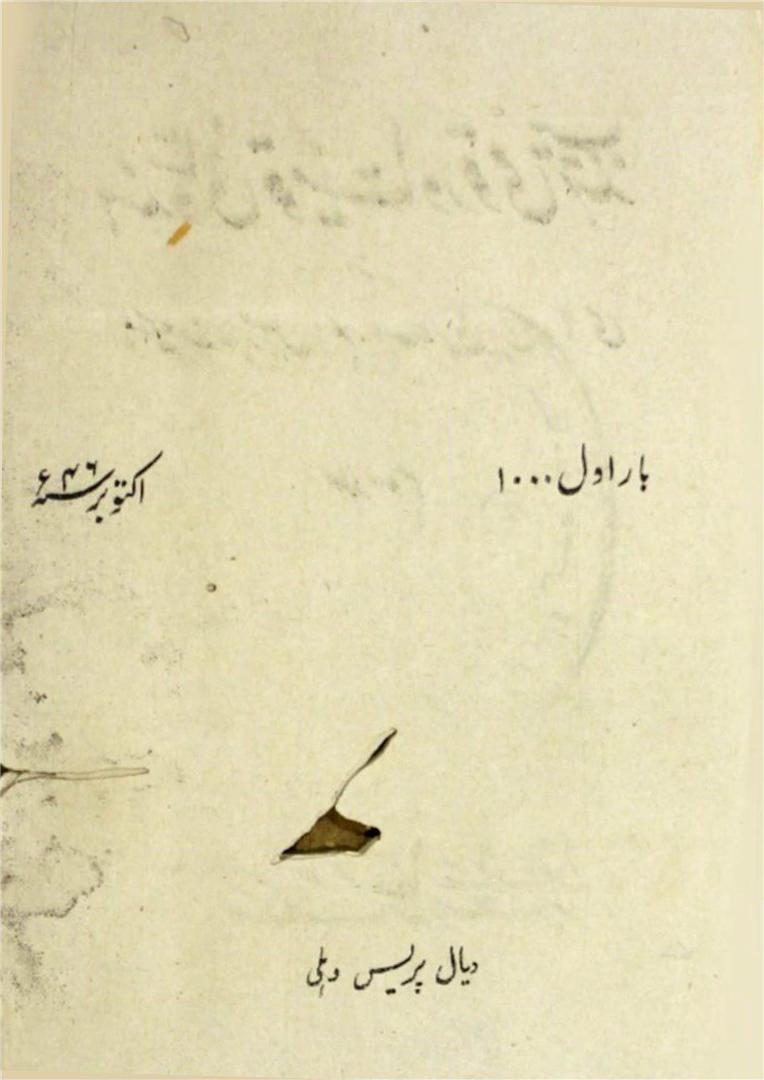 بار اول ۱۰۰۰
اکتوبر سنہ ۴۶ء
دیال پریس دہلی